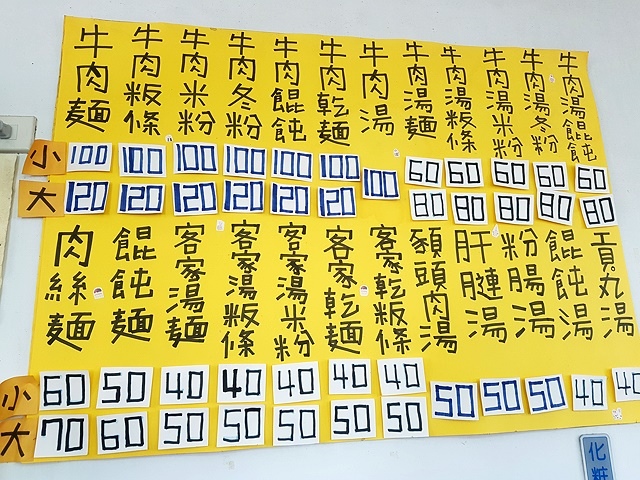 牛肉麵
牛肉粄條
牛肉米粉
牛肉冬粉
牛肉餛飩
牛肉乾麵
牛肉湯
牛肉湯麵
牛肉湯粄條
牛肉湯米粉
牛肉湯冬粉
牛肉湯餛飩
小 100 100 100 100 100 100 100 60 60 60 60 60
大 120 120 120 120 120 120 80 80 80 80 80
肉絲麵
餛飩麵
客家湯麵
客家湯粄條
客家湯米粉
客家乾麵
客家乾粄條
豬頭肉湯
肝膁湯
粉腸湯
餛飩湯
貢丸湯
小 60 50 40 40 40 40 40 50 50 50 40 40
大 70 60 50 50 50 50 50
化粧